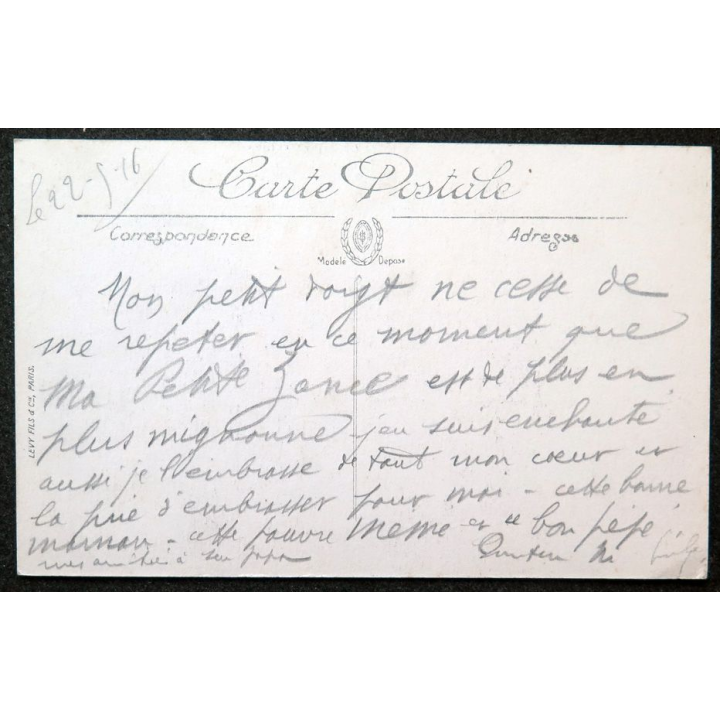 le 22-5-16
Carte Postale
Correspondance
Adresse
Modèle Déposé
LEVY FILS & Cie, PARIS.
Mon petit doigt ne cesse de
me repeter en ce moment que
Ma Petite est de plus en
plus mignonne j'en suis enchanté
aussi je l'embrasse de tout mon cœur et
la prie d'embrasser pour moi - cette bonne
maman - cette pauvre mémé et ce bon pépé
mes amitiés à son papa